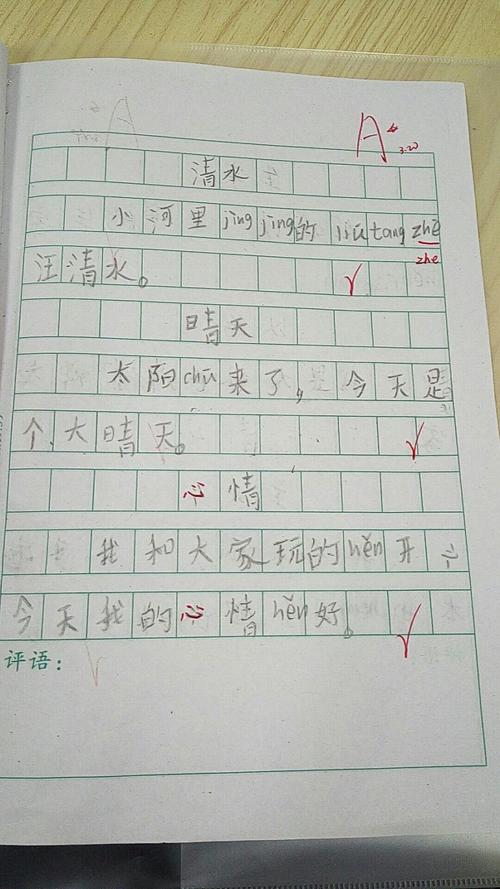 A
3.20
清水
小河里jìngjìng的liútangzhē
zhe
汪清水。
晴天
太阳chū来了,今天是
个大晴天。
心情
我和大家玩的hěn开心
今天我的心情hěn好。
评语: